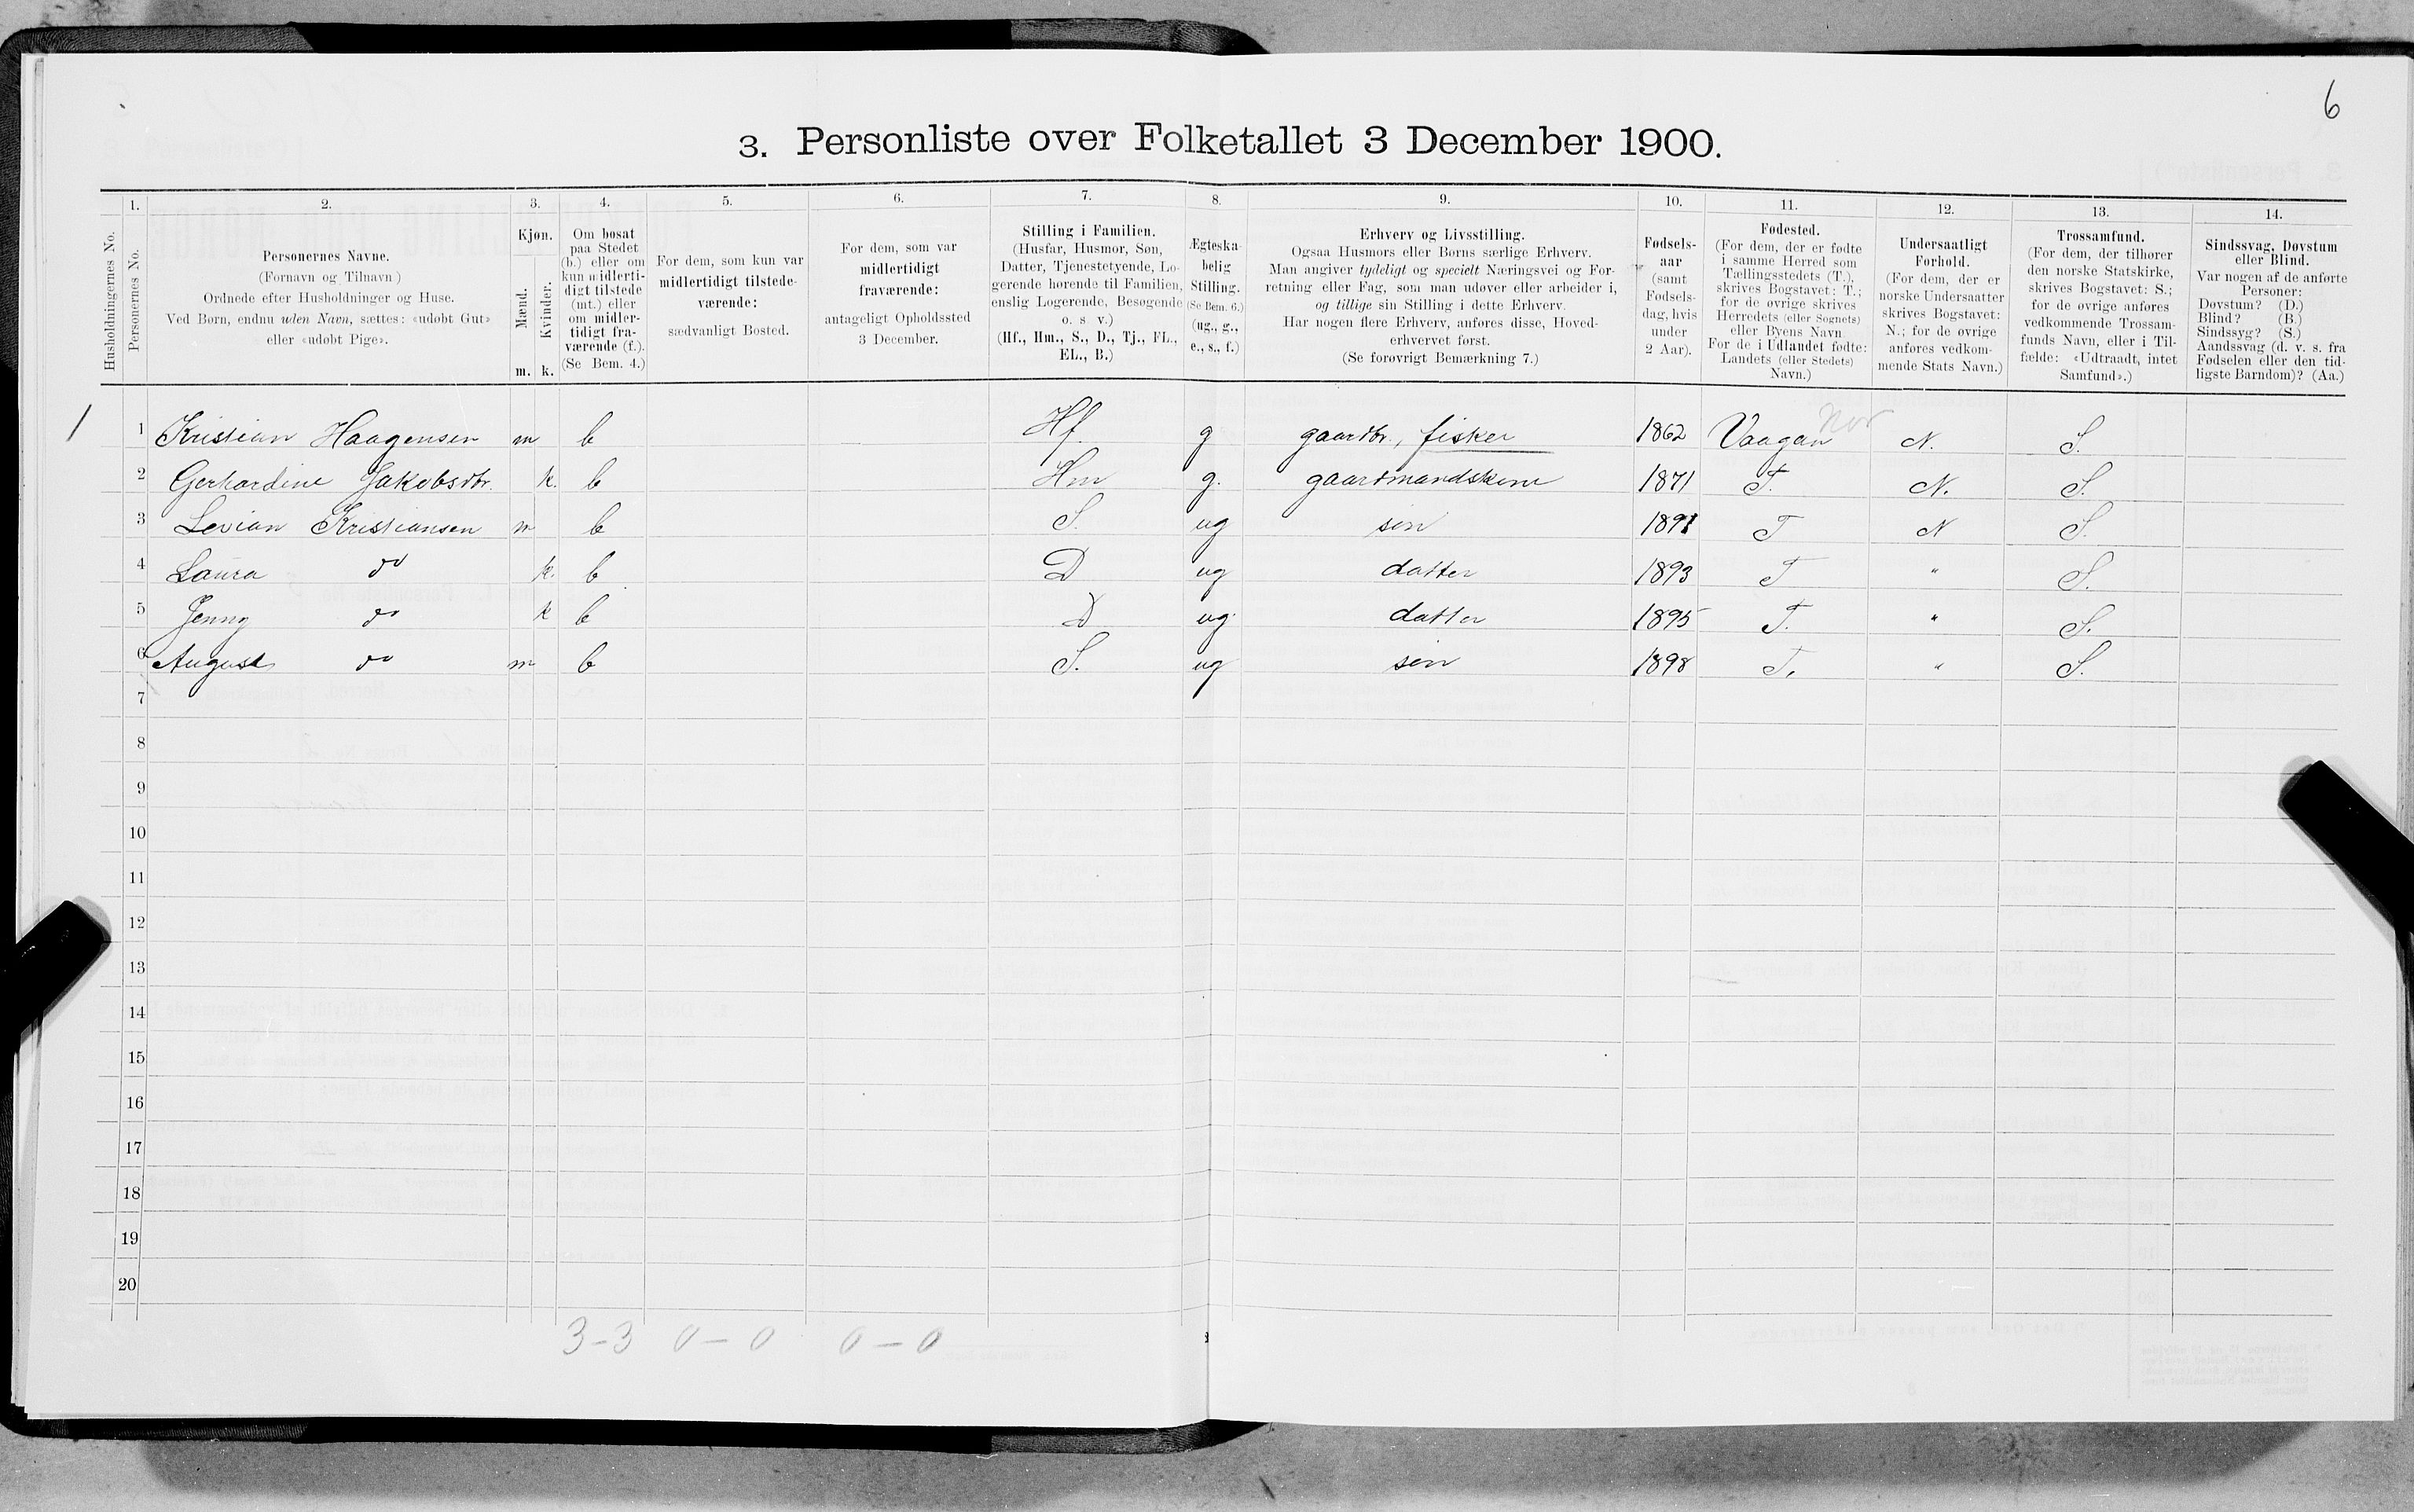 6
3. Personliste over Folketallet 3 December 1900.
1. 2. 3. 4. 5. 6. 7. 8. 9. 10. 11. 12. 13. 14.
Husholdningernes No.
Personernes No.
Personernes Navne.
(Fornavn og Tilnavn)
Ordnede efter Husholdninger og Huse.
Ved Børn, endnu uden Navn, sættes: «udøbt Gut»
eller «udøbt Pige».
Kjøn.
Mænd.
Kvinder.
m. k.
Om bosat
paa Stedet
(b.) eller om
kun midlerti-
digt tilstede
(mt.) eller
om midler-
tidigt fra-
værende (f.).
(Se Bem. 4.)
For dem, som kun var
midlertidigt tilstede-
værende:
sædvanligt Bosted.
For dem, som var
midlertidigt
fraværende:
antageligt Opholdssted
3 December.
Stilling i Familien.
(Husfar, Husmor, Søn,
Datter, Tjenestetyende, Lo-
gerende hørende til Familien,
enslig Logerende, Besøgende
o. s. v.)
(Hf., Hm., S., D., Tj., FL.,
EL., B.)
Ægteska-
belig
Stilling.
(Se Bem. 6.)
(ug., g.,
e., s., f.)
Erhverv og Livsstilling.
Ogsaa Husmors eller Børns særlige Erhverv.
Man angiver tydeligt og specielt Næringsvei og For-
retning eller Fag, som man udøver eller arbeider i,
og tillige sin Stilling i dette Erhverv.
Har nogen flere Erhverv, anføres disse, Hoved-
erhvervet først.
(Se forøvrigt Bemærkning 7.)
Fødsels-
aar
(samt
Fødsels-
dag, hvis
under
2 Aar).
Fødested.
(For dem, der er fødte
i samme Herred som
Tællingsstedets (T.),
skrives Bogstavet: T.;
for de øvrige skrives
Herredets (eller Sognets)
eller Byens Navn
For de i Udlandet fødte:
Landets (eller Stedets)
Navn.)
Undersaatligt
Forhold.
(For dem, der er
norske Undersaatter
skrives Bogstavet:
N.; for de øvrige
anføres vedkom-
mende Stats Navn.)
Trossamfund.
(For dem, der tilhører
den norske Statskirke,
skrives Bogstavet: S.;
for de øvrige anføres
vedkommende Trossam-
funds Navn, eller i Til-
fælde: «Udtraadt, intet
Samfund».)
Sindssvag, Døvstum
eller Blind.
Var nogen af de anførte
Personer:
Døvstum? (D.)
Blind? (B.)
Sindssyg? (S.)
Aandssvag (d. v. s. fra
Fødselen eller den tid-
ligste Barndom)? (Aa.)
1 1 Kristian Haagensen m b Hf. g gaardbr., fisker 1862 Vaagan Nor N. S.
2 Gerhardine Jakobsdtr. k. b Hm g. gaardmandskone 1871 T. N. S.
3 Levian Kristiansen m b S. ug søn 1891 T N S.
4 Laura do k. b D ug datter 1893 T " S.
5 Jenny do k b D ug datter 1895 T. " S.
6 August do m b S. ug søn 1898 T. " S.
7
8
9
10
11
12
13
14
15
16
17
18
19
20
3-3 0-0 0-0